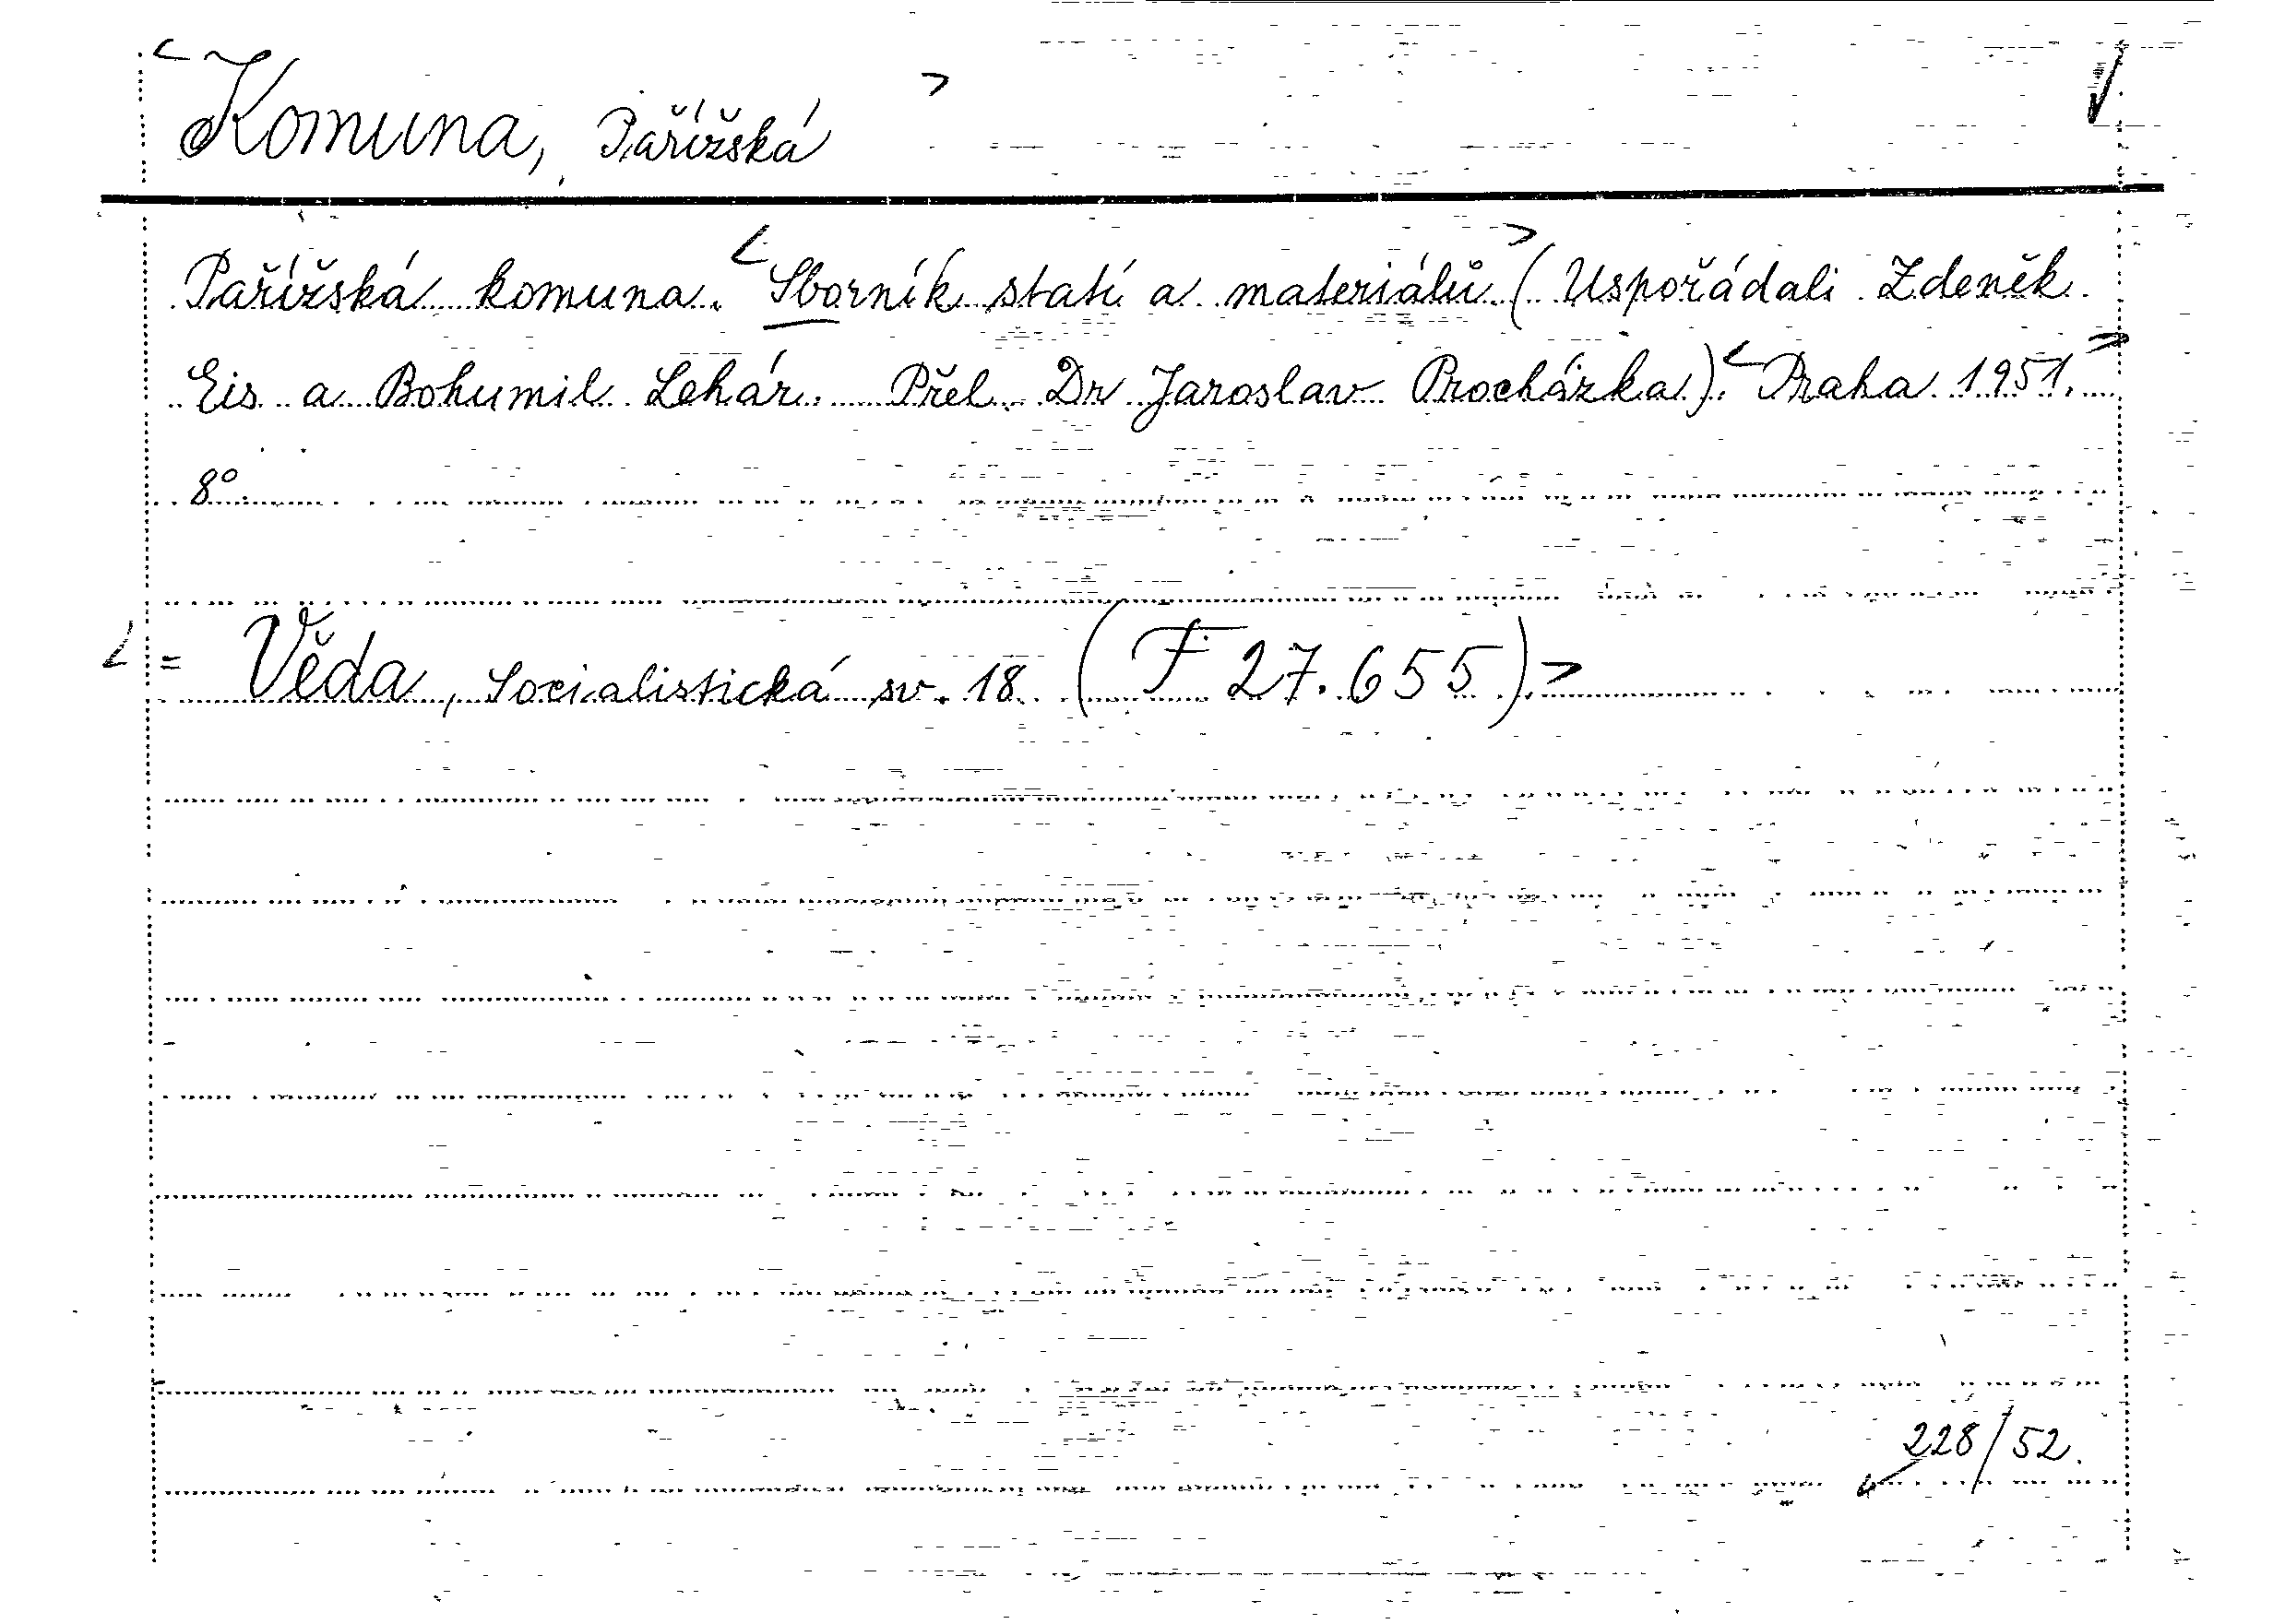 Komuna, Pařížská
Pařížská komuna. Sborník statí a materiálů (Uspořádali Zdeněk
Eis a Bohumil Lehár. Přel. Dr Jaroslav Procházka). Praha 1951.
8°.
= Věda, Socialistická sv. 18 (F 27.655)
228/52.